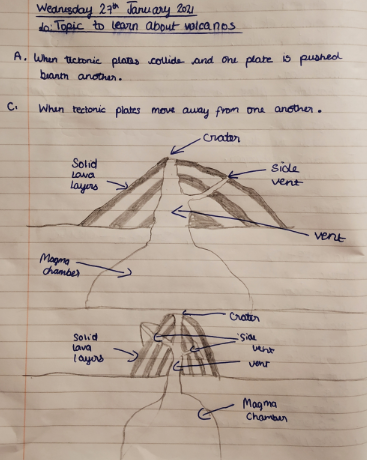 Wednesday 27th January 2021
Lo: Topic to learn about volcanos
A. When tectonic plates collide and one plate is pushed
bianth another.
C. When tectonic plates move away from one another.
Crater
Solid
Lava
layers
side
vent
vent
Magma
chamber
Crater
Solid
Lava
layers
side
vent
vent
Magma
Chamber